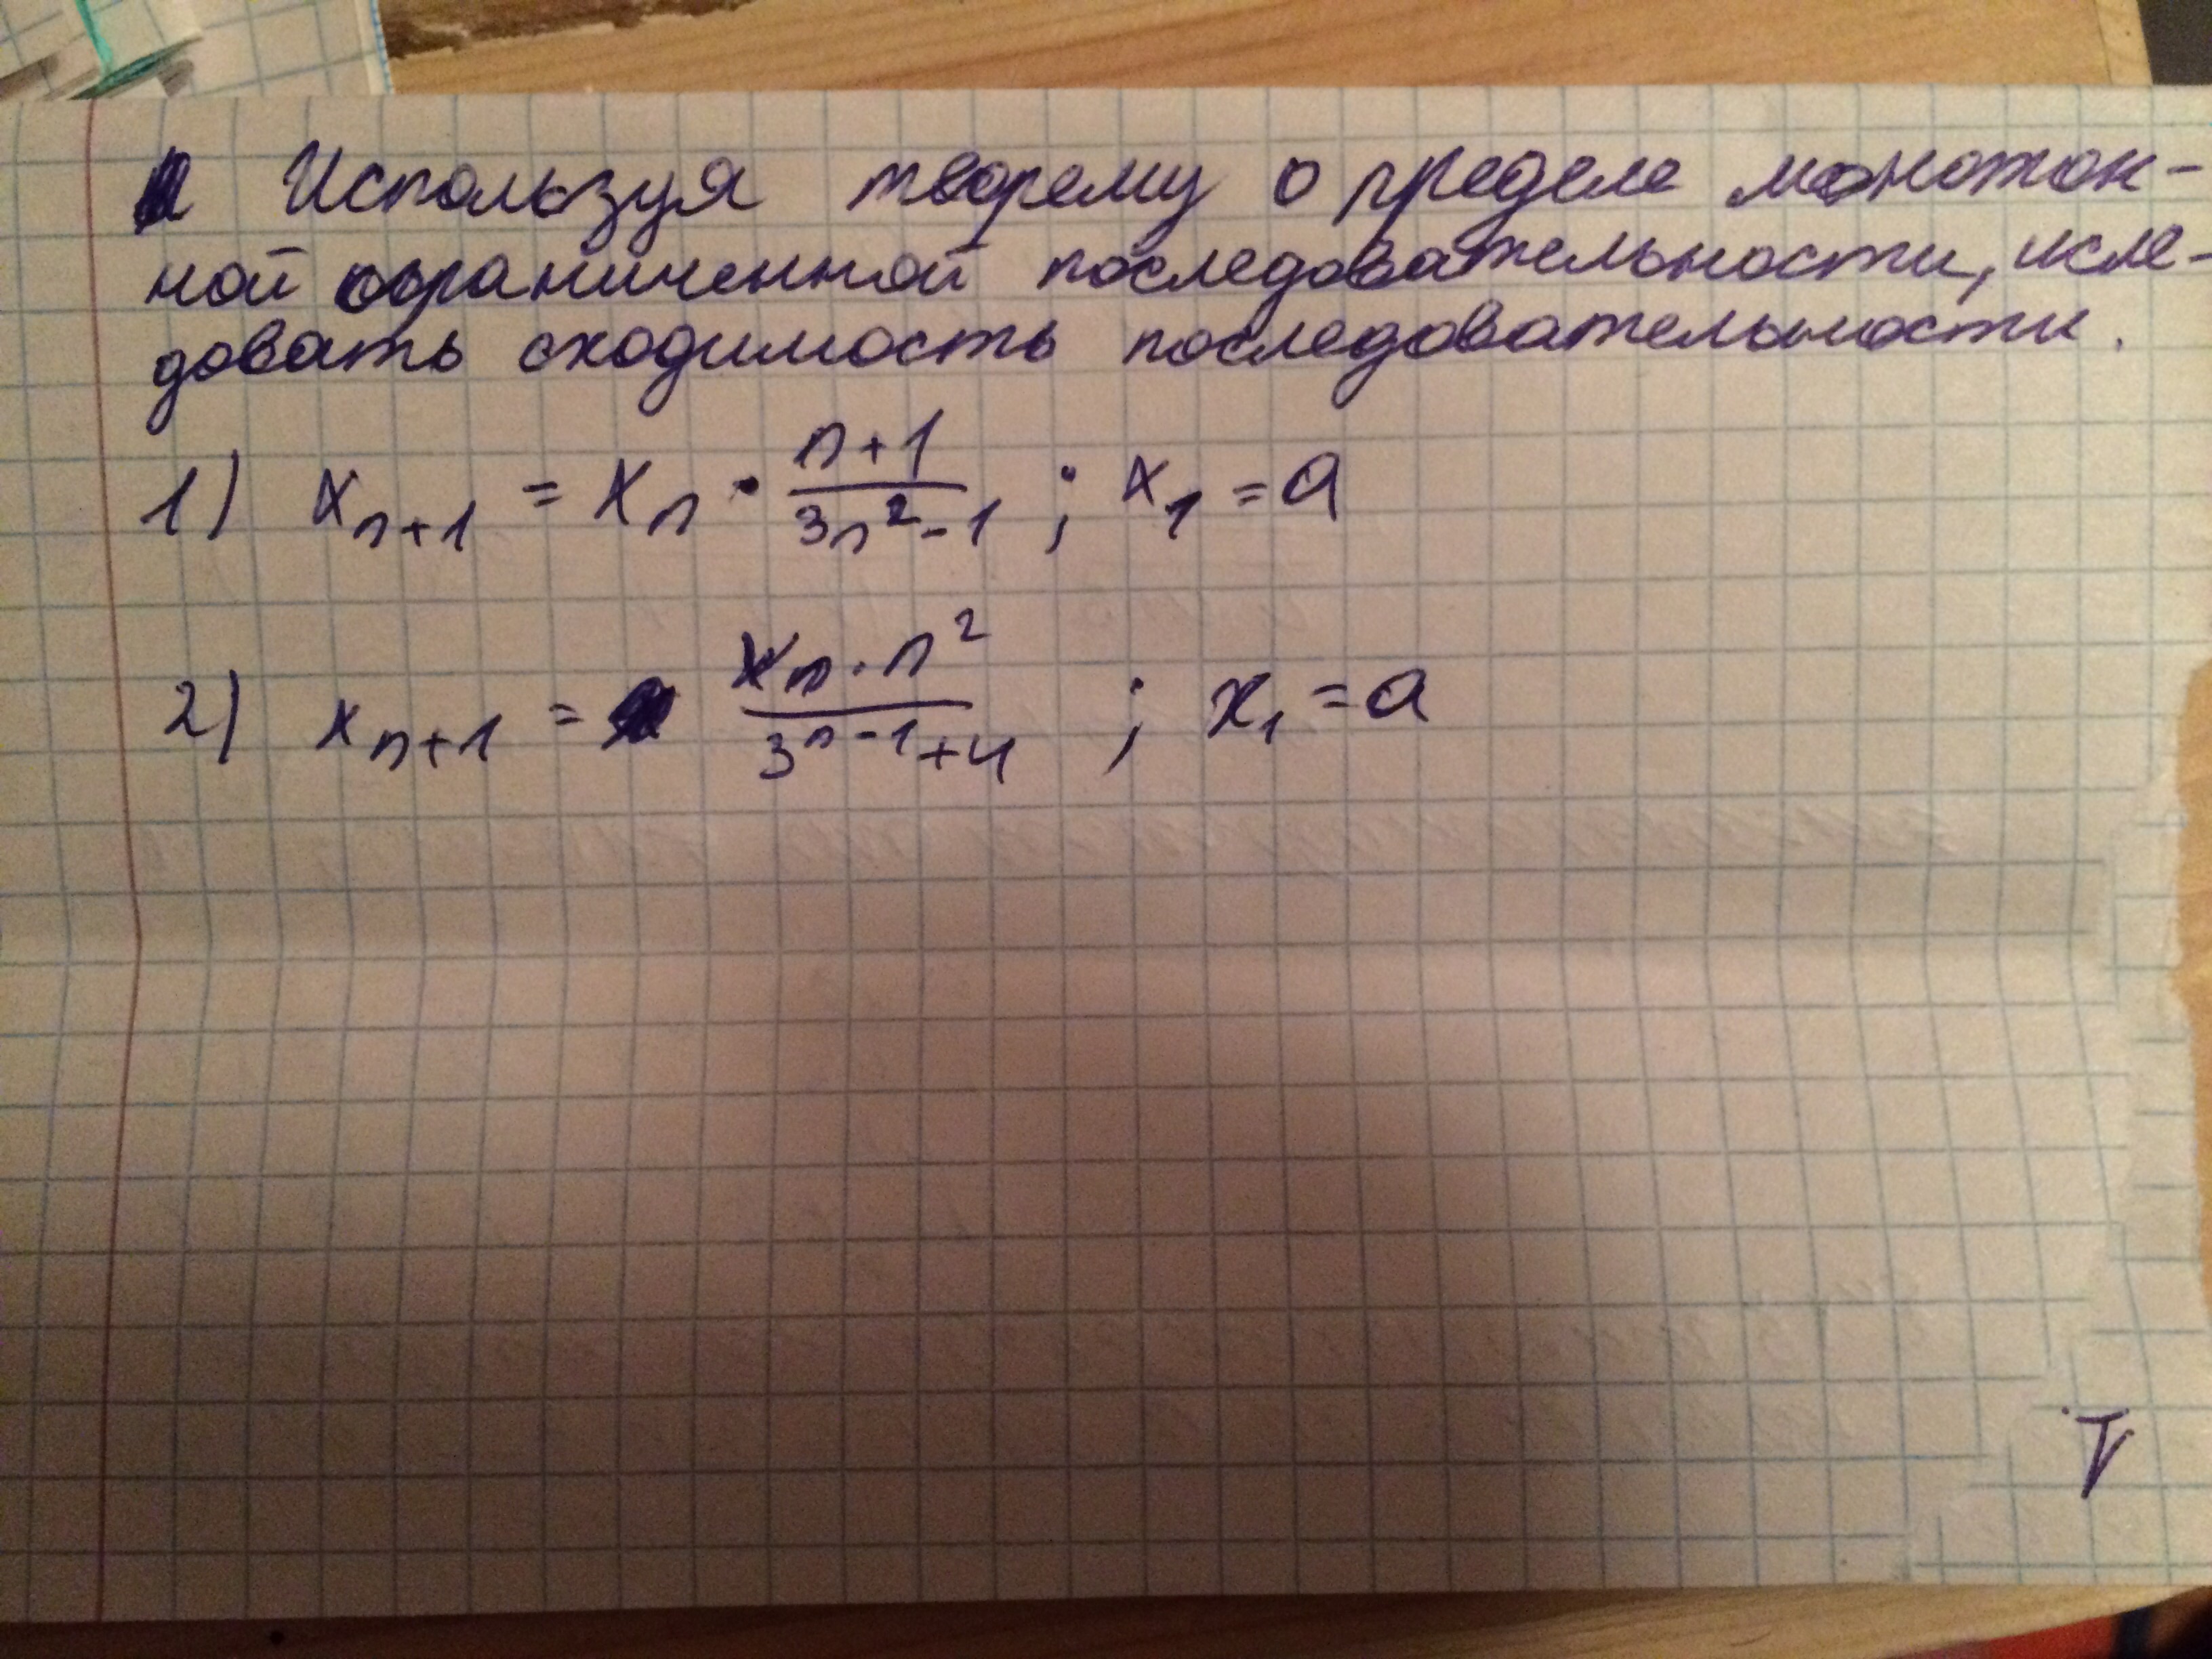 Используя теорему о пределе монотон-
ной ограниченной последовательности, исле-
довать сходимость последовательности.
1) x_{n+1} = x_n · \frac{n+1}{3n^2-1} ; x_1 = a
2) x_{n+1} = \frac{x_n · n^2}{3^{n-1}+4} ; x_1 = a